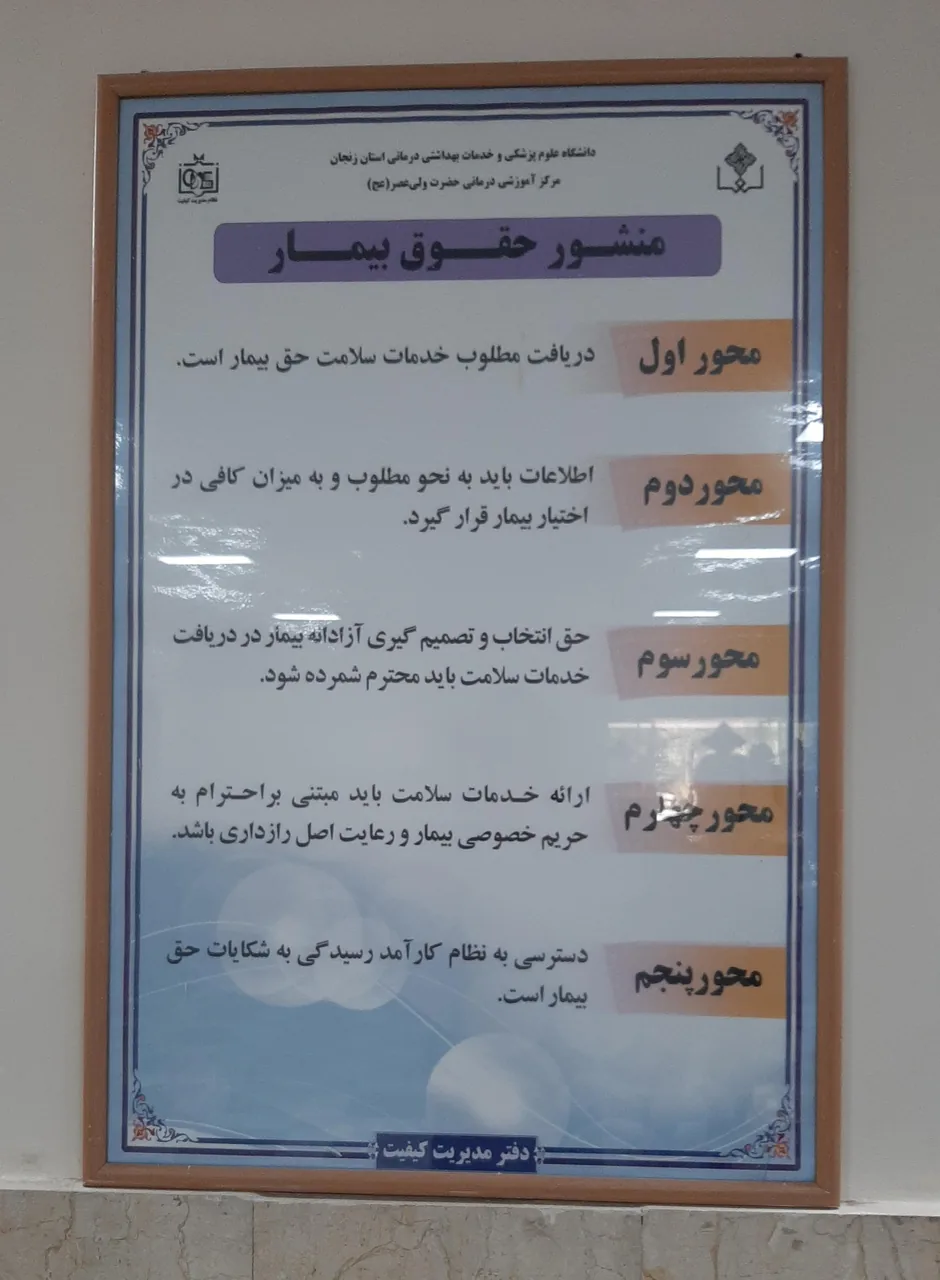 دانشگاه علوم پزشکی و خدمات بهداشتی درمانی استان زنجان
مرکز آموزشی درمانی حضرت ولی‌عصر(عج)
نظام مدیریت کیفیت
منشور حقوق بیمار
محور اول
دریافت مطلوب خدمات سلامت حق بیمار است.
محور دوم
اطلاعات باید به نحو مطلوب و به میزان کافی در
اختیار بیمار قرار گیرد.
محور سوم
حق انتخاب و تصمیم گیری آزادانه بیمار در دریافت
خدمات سلامت باید محترم شمرده شود.
محور چهارم
ارائه خدمات سلامت باید مبتنی بر احترام به
حریم خصوصی بیمار و رعایت اصل رازداری باشد.
محور پنجم
دسترسی به نظام کارآمد رسیدگی به شکایات حق
بیمار است.
دفتر مدیریت کیفیت